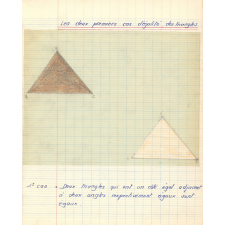 Les deux premiers cas d'égalité des triangles
1er cas . Deux triangles qui ont un côté égal adjacent
à deux angles respectivement égaux sont
égaux.